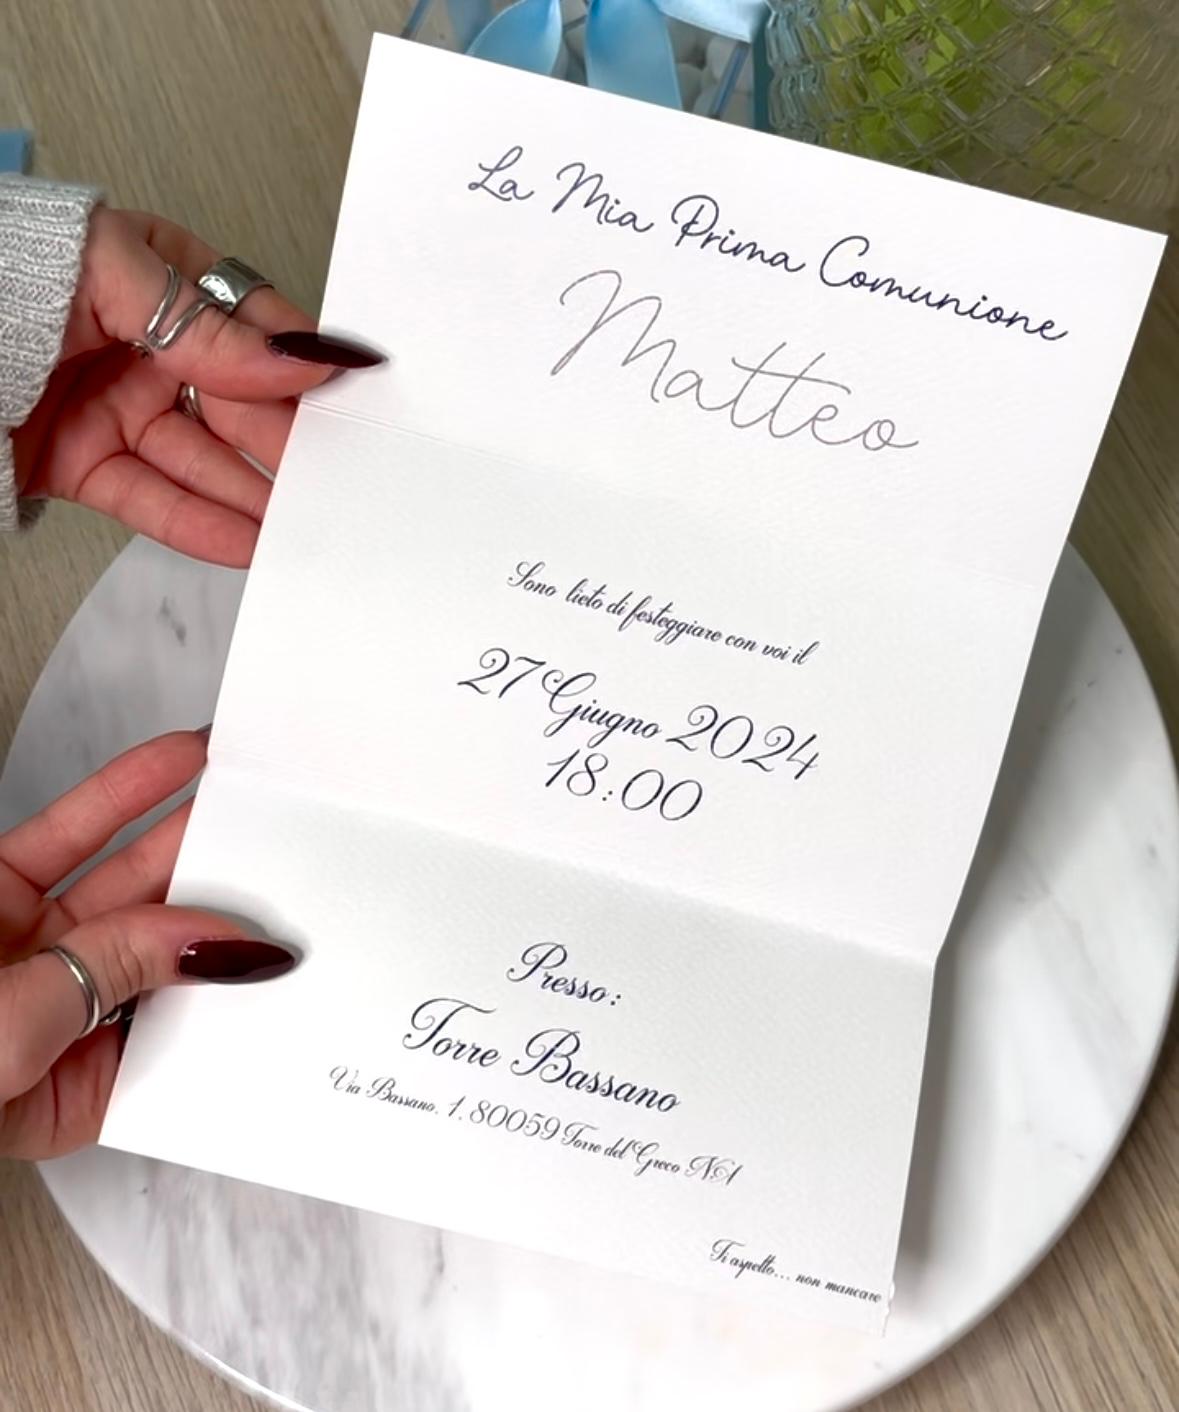 La Mia Prima Comunione
Matteo
Sono lieto di festeggiare con voi il
27 Giugno 2024
18:00
Presso:
Torre Bassano
Via Bassano, 1, 80059 Torre del Greco NA
Ti aspetto... non mancare